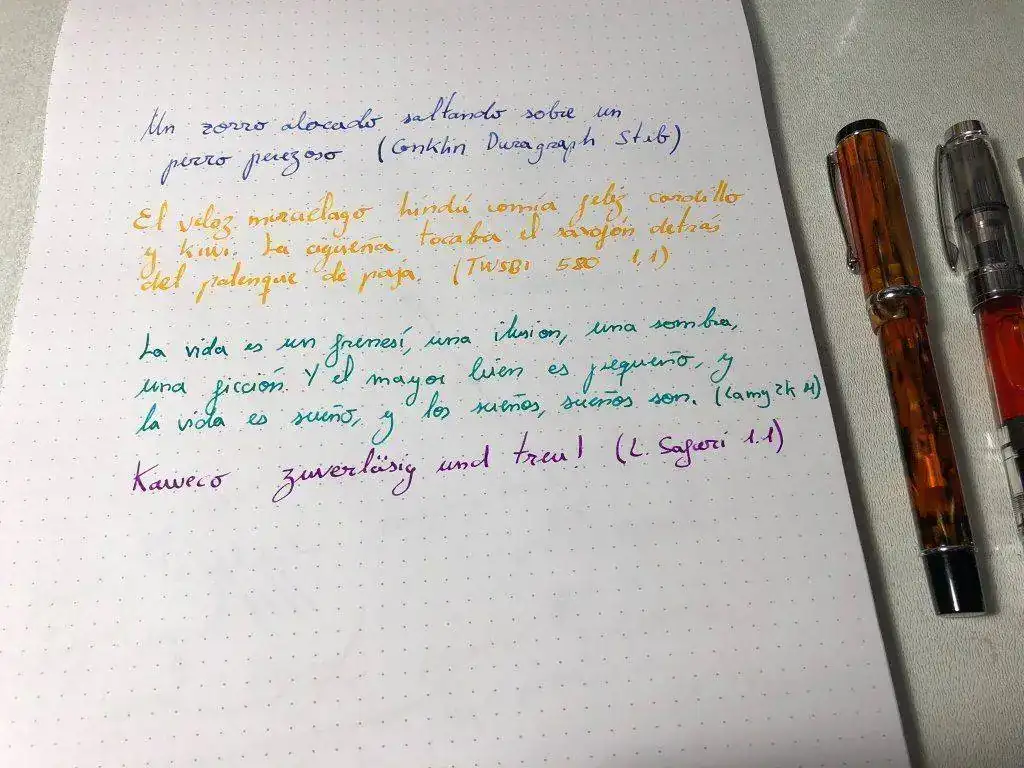 Un zorro alocado saltando sobre un
perro perezoso (Conklin Duragraph Stub)
El veloz murciélago hindú comía feliz cardillo
y kiwi. La cigüeña tocaba el saxofón detrás
del palenque de paja. (TWSBI 580 1,1)
La vida es un frenesí, una ilusion, una sombra,
una ficción. Y el mayor bien es pequeño, y
la vida es sueño, y los sueños, sueños son. (Lamy 2k M)
Kaweco zuverläsig und treu! (L. Safari 1.1)